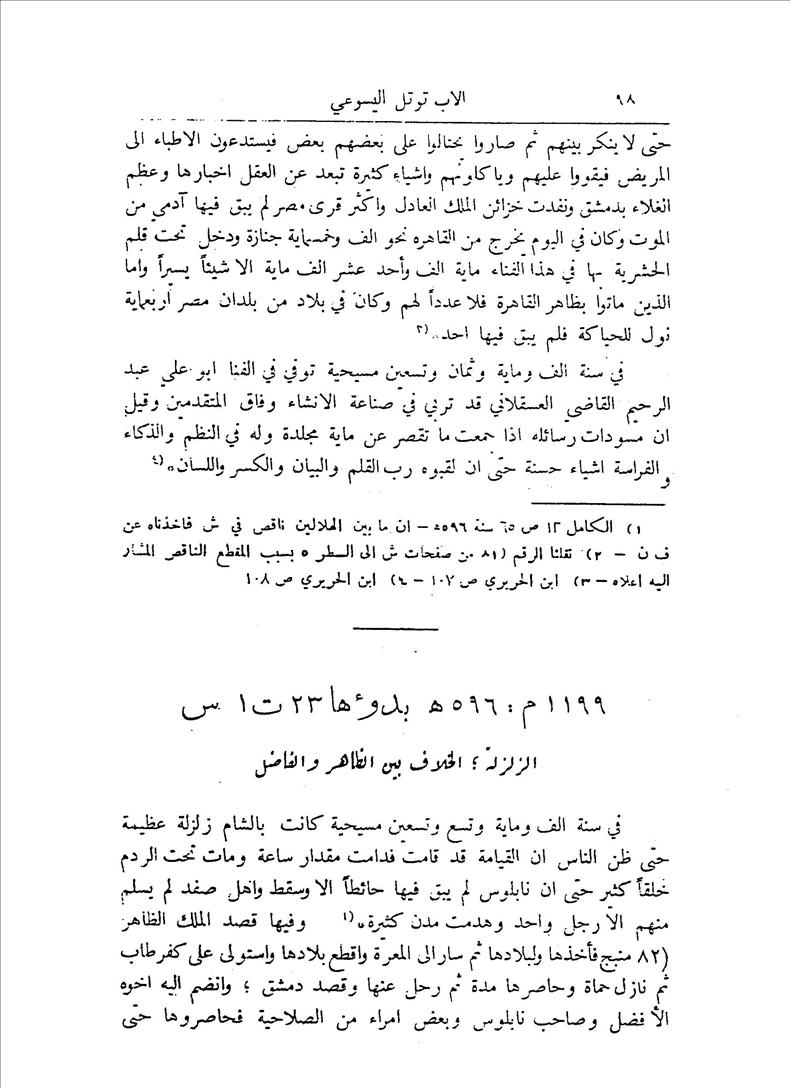 ٩٨ الاب توتل اليسوعي
حتّى لا ينكر بينهم ثم صاروا يحتالوا على بعضهم بعض فيستدعون الاطباء الى
المريض فيقووا عليهم وياكلونهم واشياء كثيرة تبعد عن العقل اخبارها وعظم
الغلاء بدمشق ونفدت خزائن الملك العادل واكثر قرى مصر لم يبق فيها آدمي من
الموت وكان في اليوم يخرج من القاهره نحو الف وخمسماية جنازة ودخل تحت قلم
الحشرية بها في هذا الفناء ماية الف وأحد عشر الف ماية الا شيئاً يسيراً واما
الذين ماتوا بظاهر القاهرة فلا عدداً لهم وكان في بلاد من بلدان مصر اربعماية
نول للحياكة فلم يبق فيها احد.. ٣)
في سنة الف وماية وثمان وتسعين مسيحية توفي في الفنا ابو علي عبد
الرحيم القاضي العسقلاني قد تربي في صناعة الانشاء وفاق المتقدمين وقيل
ان مسودات رسائله اذا جمعت ما تقصر عن ماية مجلدة وله في النظم والذكاء
والفراسة اشياء حسنة حتّى ان لقبوه رب القلم والبيان والكسر واللسان» ٤)
١) الكامل ١٢ ص ٦٥ سنة ٥٩٦ه – ان ما بين الهلالين ناقص في ش فاخذناه عن
ف ن – ٢) نقلنا الرقم (٨١ من صفحات ش الى السطر ٥ بسبب المقطع الناقص المشار
اليه اعلاه – ٣) ابن الحريري ص ١٠٧ – ٤) ابن الحريري ص ١٠٨
١١٩٩ م : ٥٩٦ ه بدوءها ٢٣ ت ١ س
الزلزلة ؛ الخلاف بين الظاهر والفاضل
في سنة الف وماية وتسع وتسعين مسيحية كانت بالشام زلزلة عظيمة
حتّى ظن الناس ان القيامة قد قامت فدامت مقدار ساعة ومات تحت الردم
خلقاً كثير حتّى ان نابلوس لم يبق فيها حائطاً الا وسقط واهل صفد لم يسلم
منهم الا رجل واحد وهدمت مدن كثيرة» ١) وفيها قصد الملك الظاهر
(٨٢ منبج فأخذها ولبلادها ثم سار الى المعرة واقطع بلادها واستولى على كفرطاب
ثم نازل حماة وحاصرها مدة ثم رحل عنها وقصد دمشق ؛ وانضم اليه اخوه
الأفضل وصاحب نابلوس وبعض امراء من الصلاحية فحاصروها حتّى